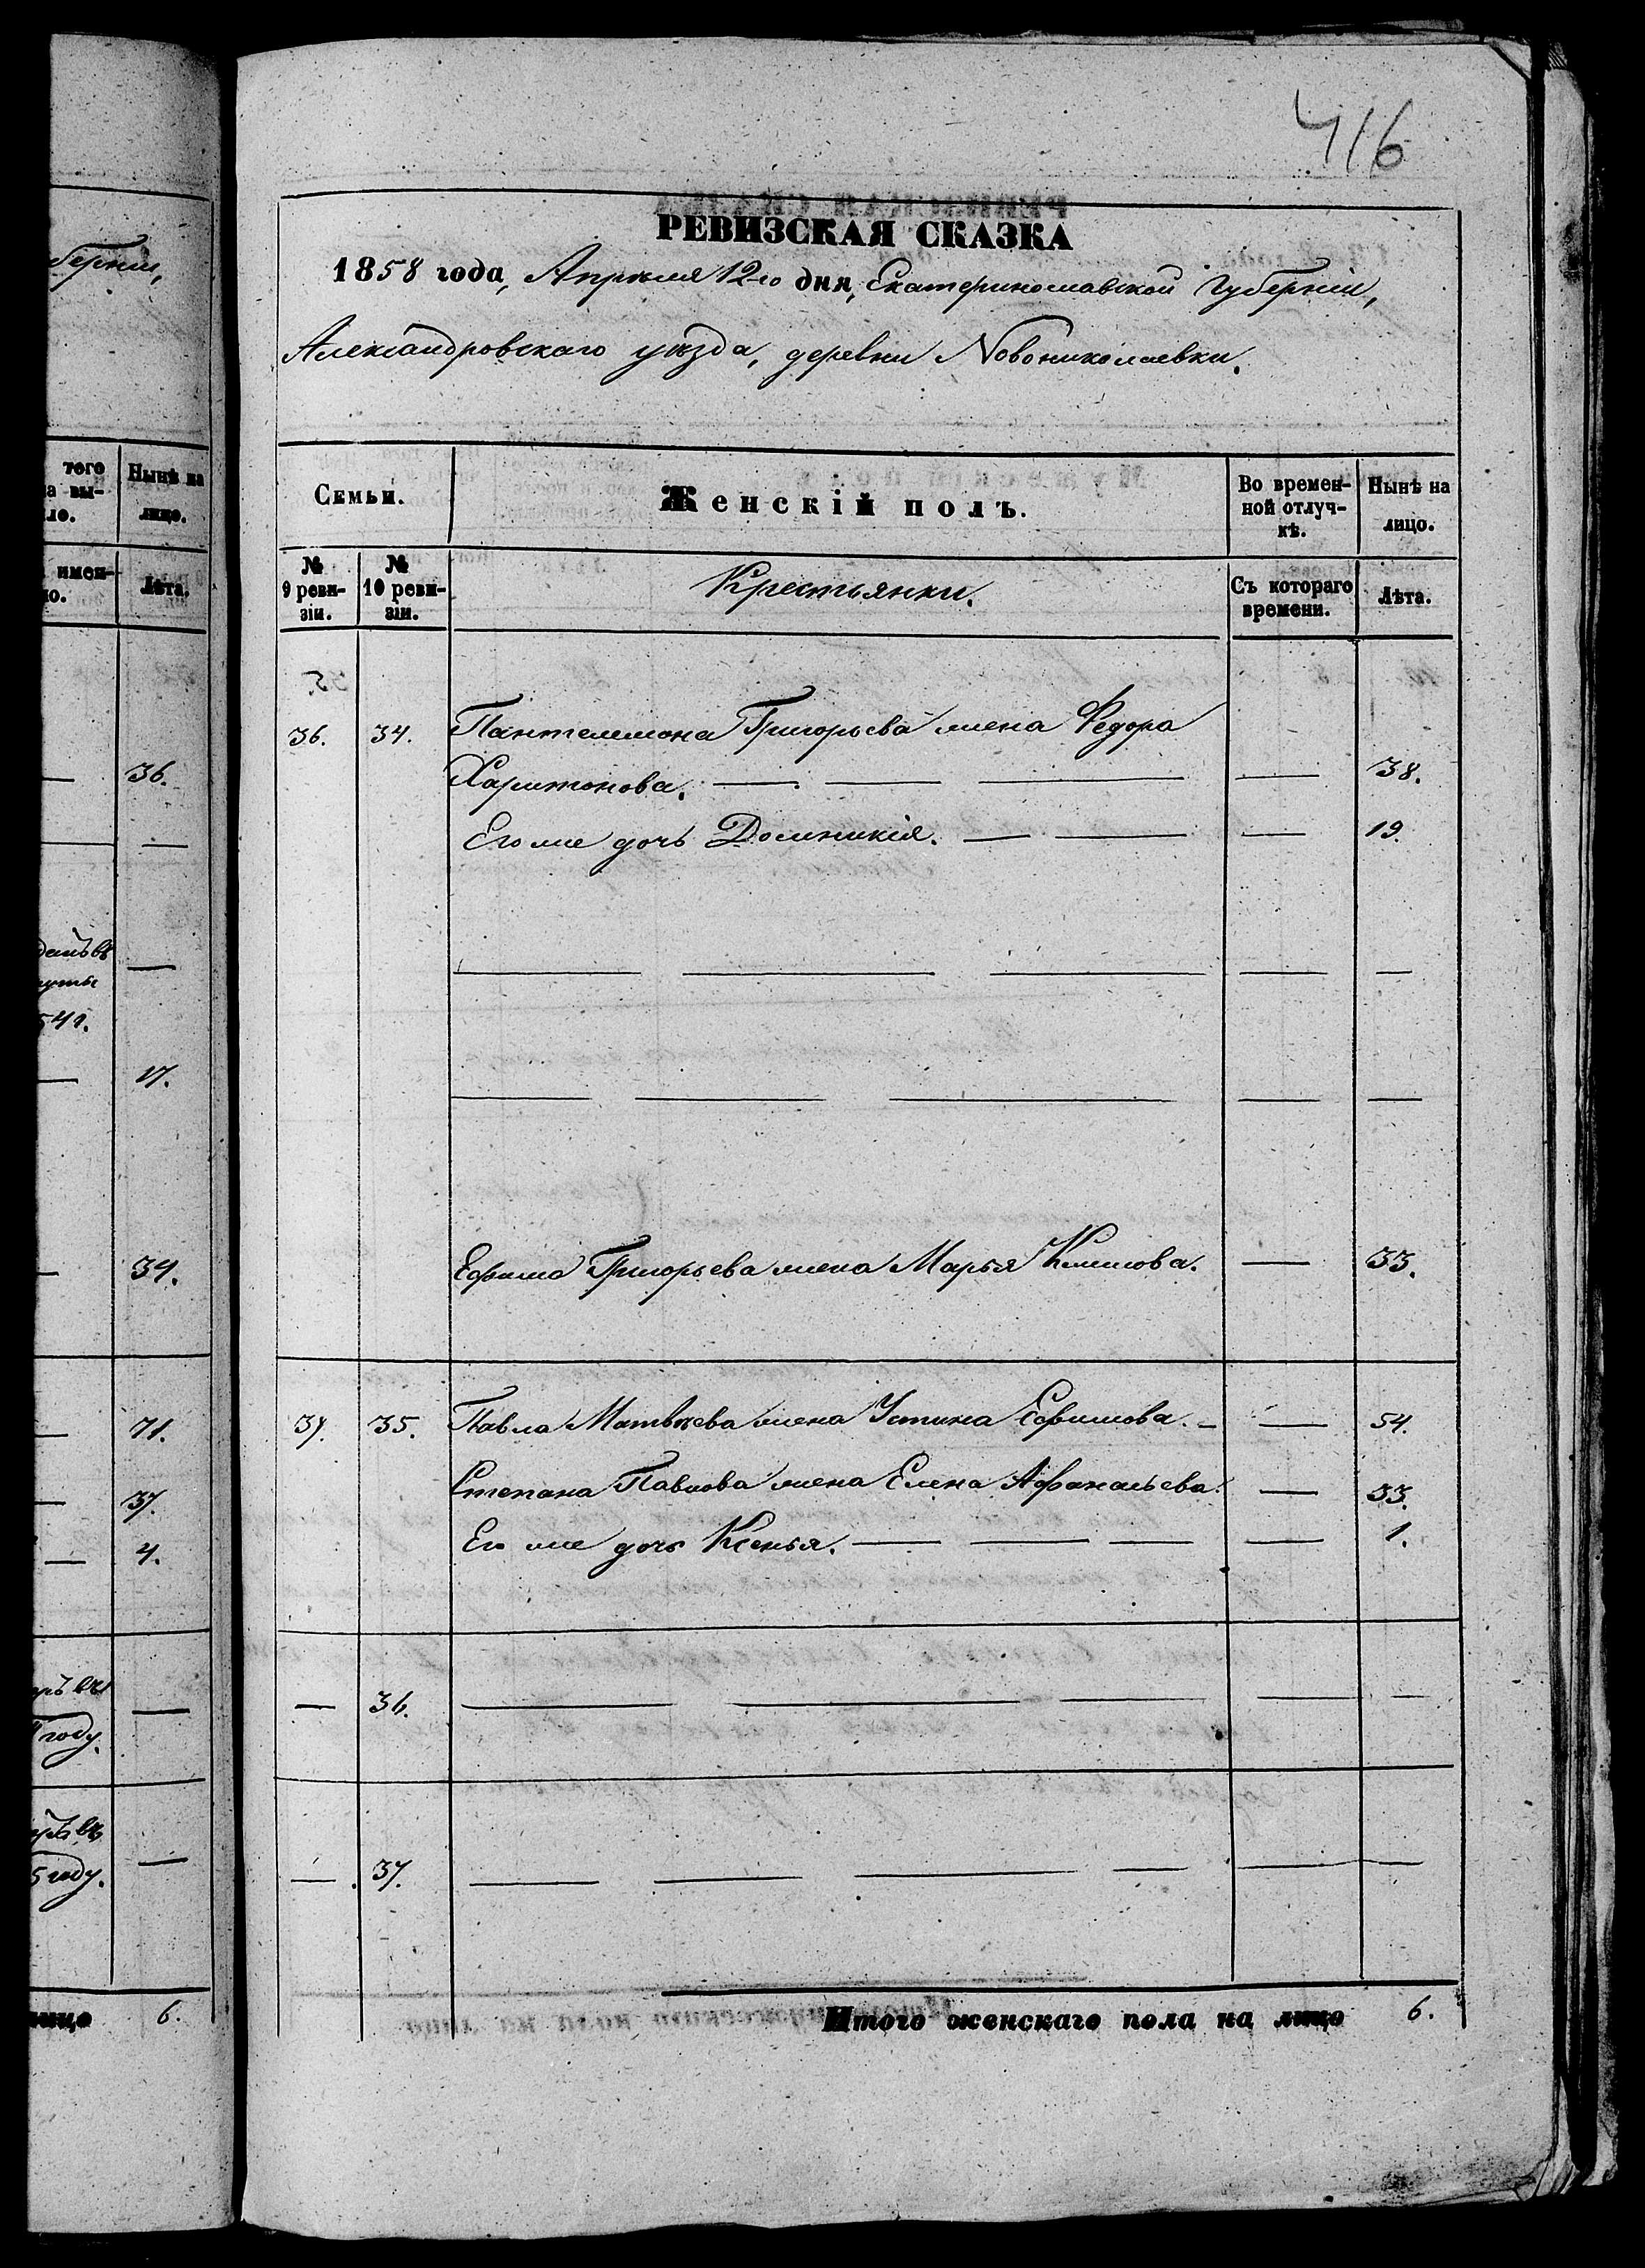 416
РЕВИЗСКАЯ СКАЗКА
1858 года, Апрѣля 12-го дня, Екатеринославской Губерніи,
Александровскаго уѣзда, деревни Новониколаевки.
Семьи. Женскій полъ. Во времен-ной отлуч-кѣ. Нынѣ на лицо.
№ 9 реви-зіи. № 10 реви-зіи. Крестьянки. Съ котораго времени. Лѣта.
36. 34. Пантелимона Григорьева жена Федора
Харитонова. — — — — 38.
Его же дочь Домникія. — — — 19.
Ефима Григорьева жена Марья Климова. — 33.
37. 35. Павла Матвѣева жена Устина Ефимова. — — 54.
Степана Павлова жена Елена Афанасьева. — 33.
Его же дочь Ксенья. — — — — 1.
— 36. — — — — —
— 37. — — — — — —
Итого женскаго пола на лицо 6.
берніи,
того
а вы-
ло.
Нынѣ на
лицо.
имен-
но.
Лѣта.
36.
541.
17.
34.
71.
37.
4.
году.
5 году.
лицо 6.